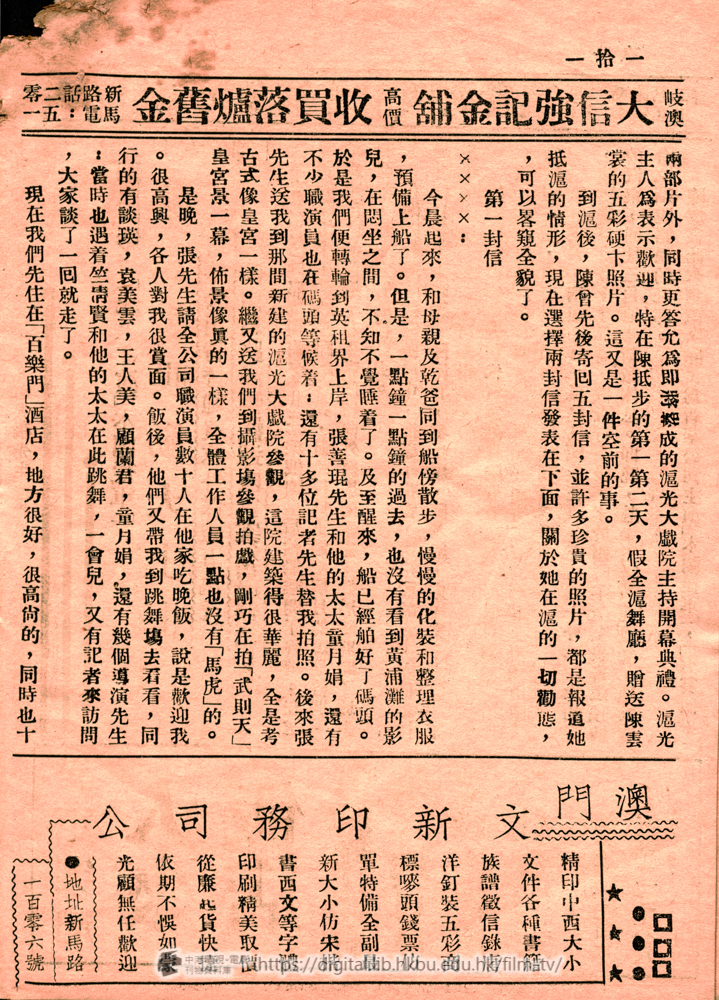 一拾一
岐澳
大信強記金舖
高價
收買落爐舊金
新馬路電話：二五零一
兩部片外，同時更答允為即將落成的滬光大戲院主持開幕典禮。滬光
主人為表示歡迎，特在陳抵步的第一第二天，假全滬舞廳，贈送陳雲
裳的五彩硬卞照片。這又是一件空前的事。
到滬後，陳曾先後寄回五封信，並許多珍貴的照片，都是報道她
抵滬的情形，現在選擇兩封信發表在下面，關於她在滬的一切動態，
，可以畧窺全貌了。
第一封信
××××：
今晨起來，和母親及乾爸同到船傍散步，慢慢的化裝和整理衣服
，預備上船了。但是，一點鐘一點鐘的過去，也沒有看到黃浦灘的影
兒，在悶坐之間，不知不覺睡着了。及至醒來，船已經舶好了碼頭。
於是我們便轉輪到英租界上岸，張善琨先生和他的太太童月娟，還有
不少職演員也在碼頭等候着：還有十多位記者先生替我拍照。後來張
先生送我到那間新建的滬光大戲院參觀，這院建築得很華麗，全是考
古式像皇宮一樣。繼又送我們到攝影塲參觀拍戲，剛巧在拍「武則天」
皇宮景一幕，佈景像眞的一樣，全體工作人員一點也沒有「馬虎」的。
是晚，張先生請全公司職演員數十人在他家吃晚飯，說是歡迎我
。很高興，各人對我很賞面。飯後，他們又帶我到跳舞塲去看看，同
行的有談瑛，袁美雲，王人美，顧蘭君，童月娟，還有幾個導演先生
：當時也遇着竺清賢和他的太太在此跳舞，一會兒，又有記者來訪問
，大家談了一囘就走了。
現在我們先住在「百樂門」酒店，地方很好，很高尙的，同時也十
澳門
文新印務司公
精印中西大小
文件各種書籍
族譜徵信錄
洋釘裝五彩商
標嘜頭錢票
單特備全副
新大小仿宋
書西文等字
印刷精美取價
從廉起貨快
依期不悞如蒙
光顧無任歡迎
●地址新馬路
一百零六號
中港電視·電
刊物資料庫
https://digital.lib.hkbu.edu.hk/filmtv/